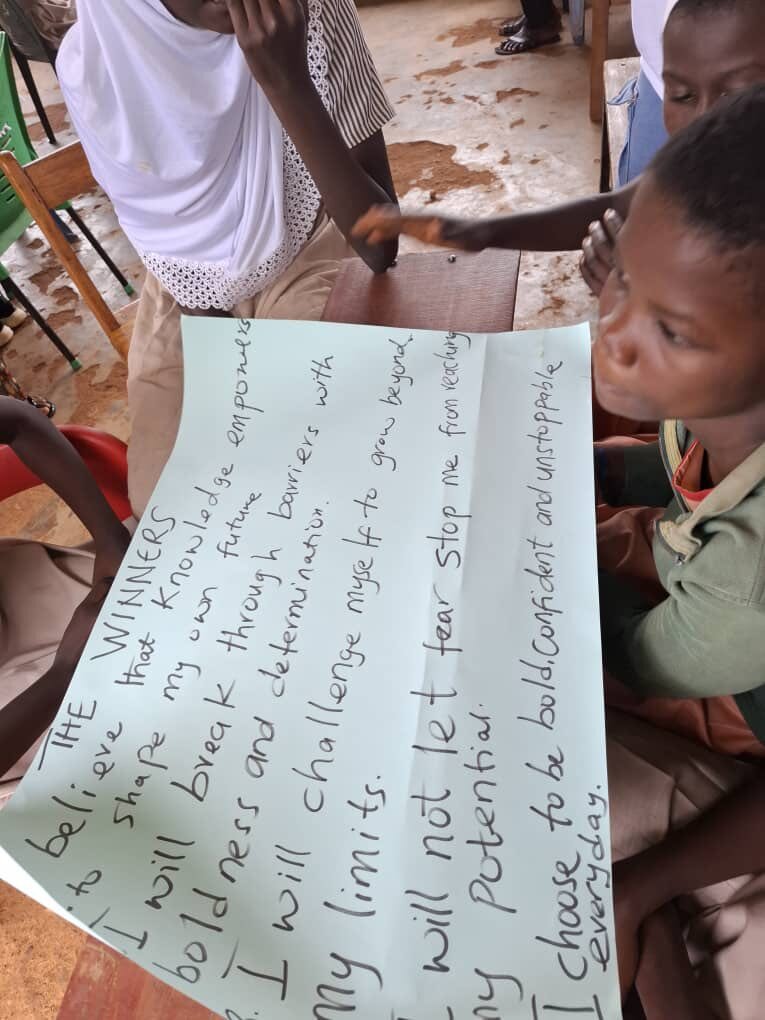 THE WINNERS
I believe that knowledge empowers
to shape my own future
I will break through barriers with
boldness and determination.
I will challenge myself to grow beyond
My limits.
I will not let fear stop me from reaching
my potential.
I choose to be bold, confident and unstoppable
everyday.